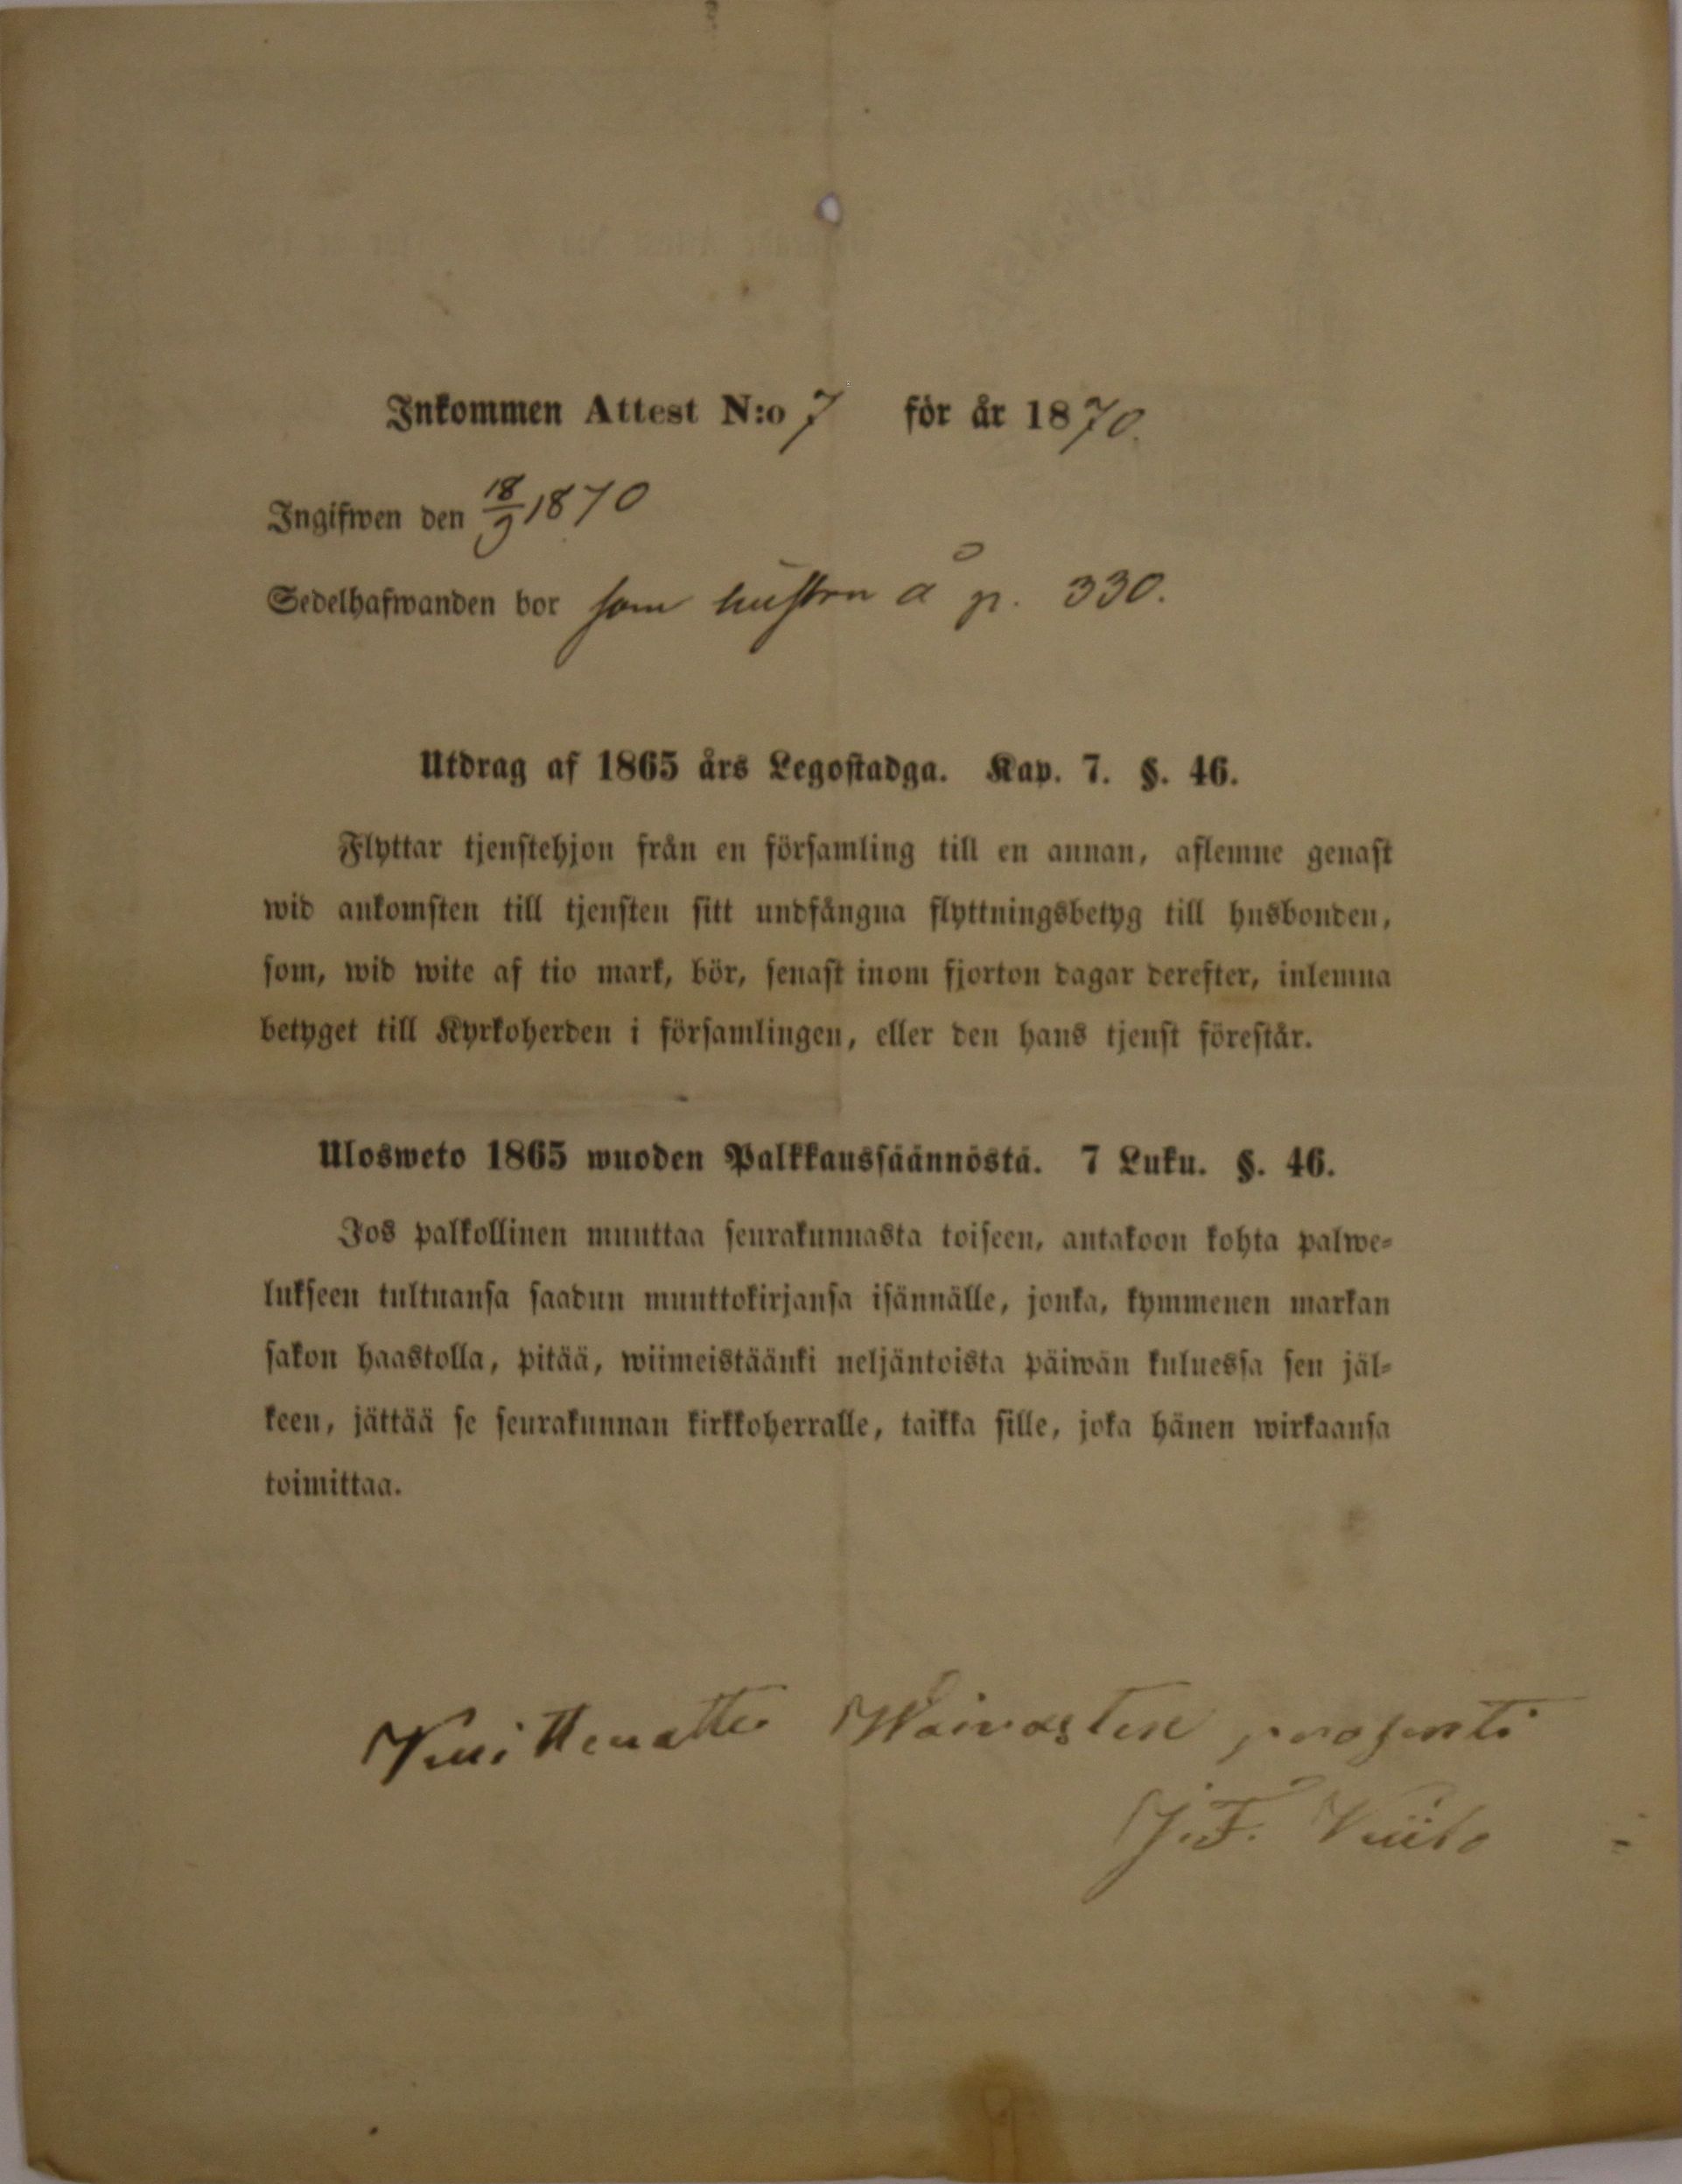 Inkommen Attest N:o 7 för år 1870.
Ingifwen den 18/9 1870
Sedelhafwanden bor som hustru å p. 330.
Utdrag af 1865 års Legostadga. Kap. 7. §. 46.
Flyttar tjenstehjon från en församling till en annan, aflemne genast
wid ankomsten till tjensten sitt undfångna flyttningsbetyg till husbonden,
som, wid wite af tio mark, bör, senast inom fjorton dagar derefter, inlemna
betyget till Kyrkoherden i församlingen, eller den hans tjenst förestår.
Ulosweto 1865 wuoden Palkkaussäännöstä. 7 Luku. §. 46.
Jos palkollinen muuttaa seurakunnasta toiseen, antakoon kohta palwe-
lukseen tultuansa saadun muuttokirjansa isännälle, jonka, kymmenen markan
sakon haastolla, pitää, wiimeistäänki neljäntoista päiwän kuluessa sen jäl-
keen, jättää se seurakunnan kirkkoherralle, taikka sille, joka hänen wirkaansa
toimittaa.
Waivasten prosenti
J. F.